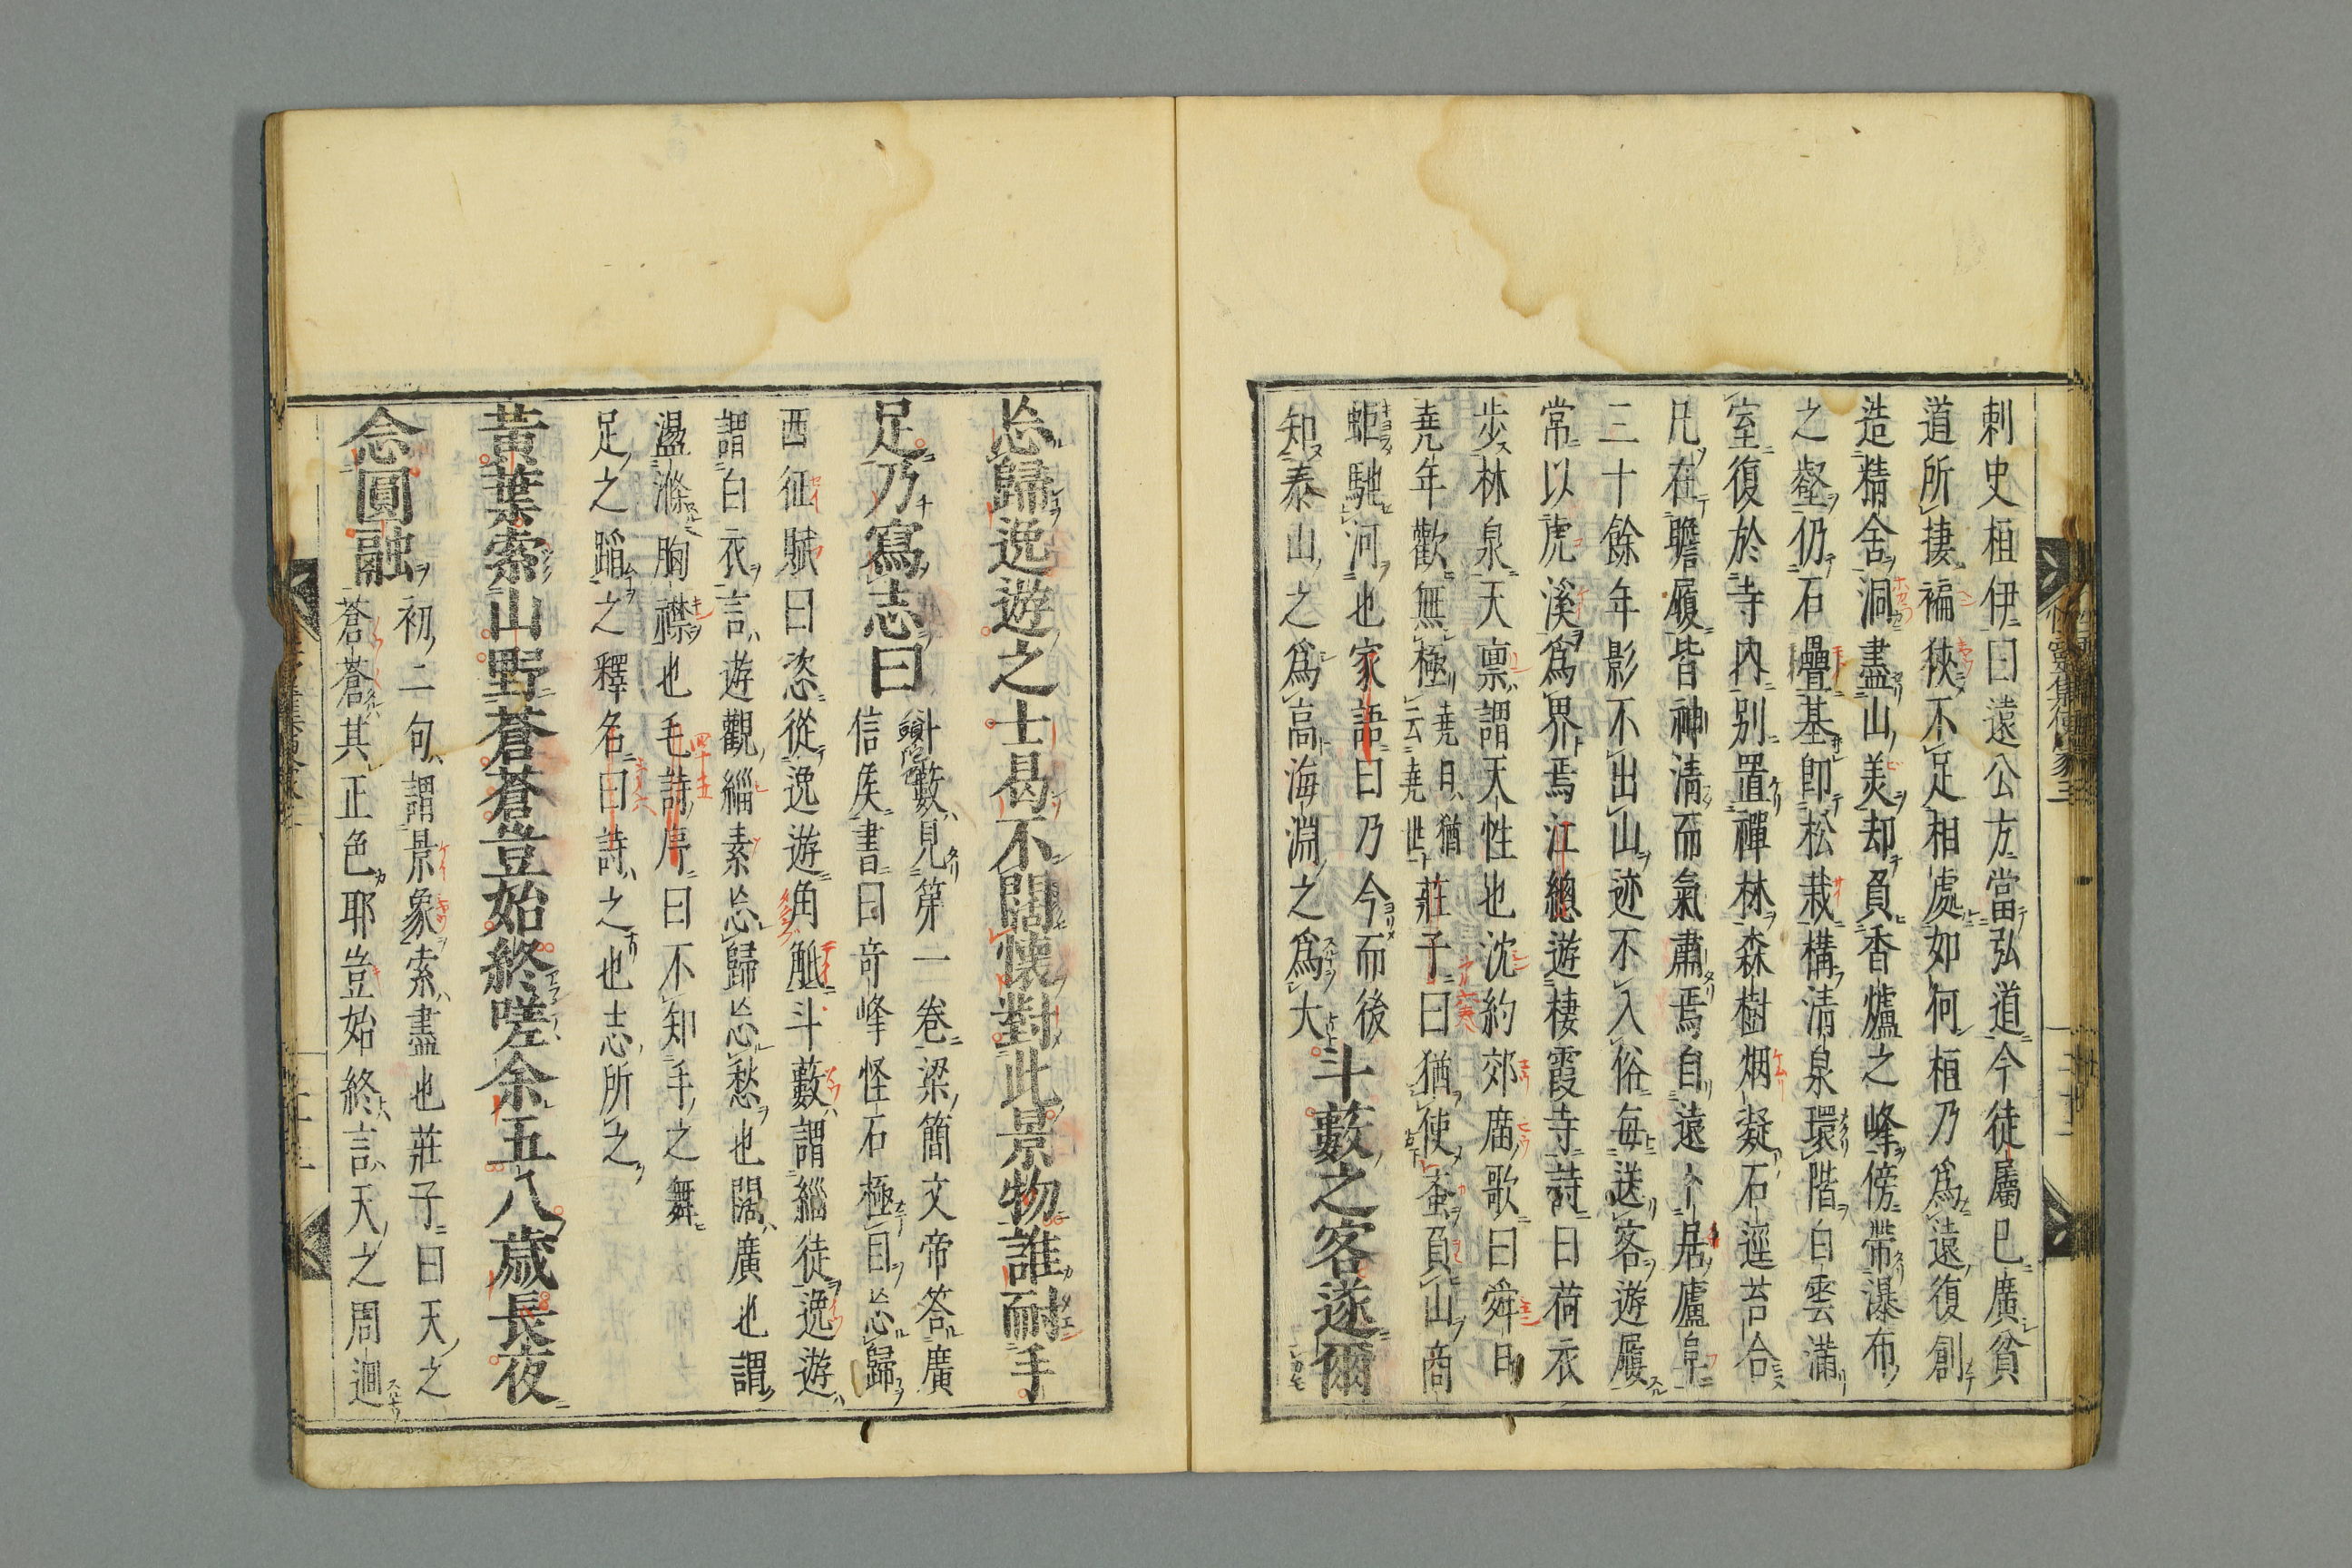 刺史桓伊曰遠公方當弘道今徒屬已廣貧
道所捿褊狹不足相處如何桓乃爲遠復創
造精舍洞盡山美却負香爐之峰傍帶瀑布
之壑仍石疊基即松栽構清泉環階白雲滿
室復於寺内别置禪林森樹烟凝石逕苔合
凡在瞻履皆神清而氣肅焉自遠卜居廬阜
三十餘年影不出山迹不入俗每送客遊履
常以虎溪爲界焉江總遊棲霞寺詩曰荷衣
步林泉天禀謂天性也沈約郊廟歌曰舜日
堯年歡無極云堯日猶堯世莊子曰猶使蚉負山商
蚷馳河也家語曰乃今而後
知泰山之爲高海淵之爲大斗藪之客遂爾
忘歸逸遊之士曷不闊懷對此景物誰耐手
足乃寫志曰斗藪見第一卷梁簡文帝答廣
信侯書曰奇峰怪石極目忘歸
西征賦曰恣從逸遊角觝斗藪謂緇徒逸遊
謂白衣言遊觀緇素忘歸忘愁也闊廣也謂
盪滌胸襟也毛詩序曰不知手之舞
足之蹈之釋名曰詩之也志所之
黃葉索山野蒼蒼豈始終嗟余五八歲長夜
念圓融初二句謂景象索盡也莊子曰天之
蒼蒼其正色耶豈始終言天之周迴